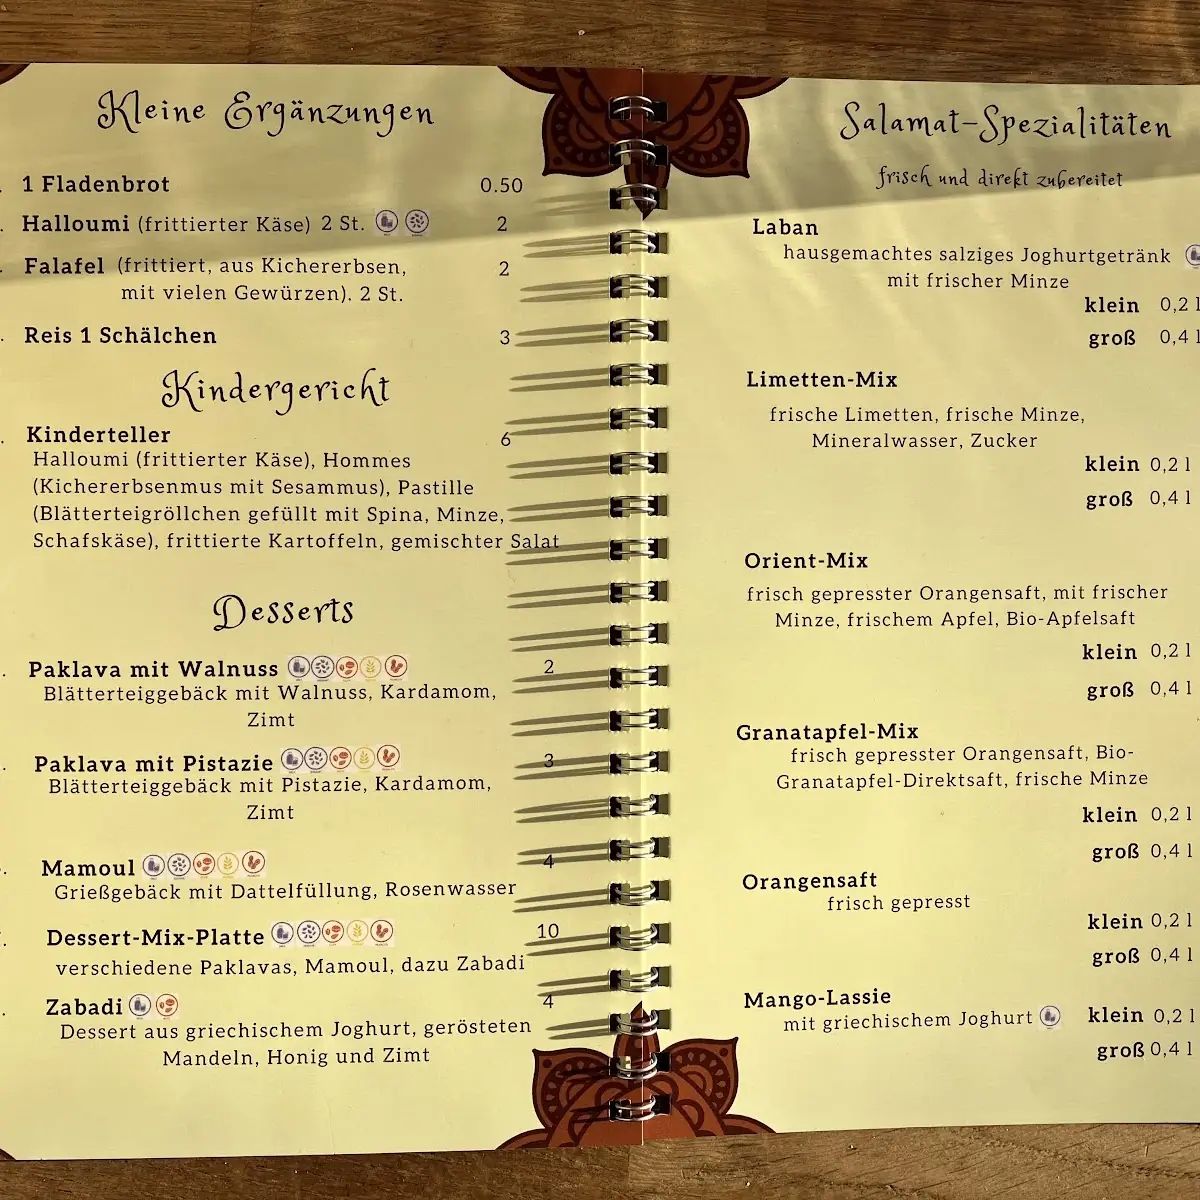 Kleine Ergänzungen
1 Fladenbrot 0.50
Halloumi (frittierter Käse) 2 St. 2
Falafel (frittiert, aus Kichererbsen, 2
mit vielen Gewürzen). 2 St.
Reis 1 Schälchen 3
Kindergericht
Kinderteller 6
Halloumi (frittierter Käse), Hommes
(Kichererbsenmus mit Sesammus), Pastille
(Blätterteigröllchen gefüllt mit Spina, Minze,
Schafskäse), frittierte Kartoffeln, gemischter Salat
Desserts
Paklava mit Walnuss 2
Blätterteiggebäck mit Walnuss, Kardamom,
Zimt
Paklava mit Pistazie 3
Blätterteiggebäck mit Pistazie, Kardamom,
Zimt
Mamoul 4
Grießgebäck mit Dattelfüllung, Rosenwasser
Dessert-Mix-Platte 10
verschiedene Paklavas, Mamoul, dazu Zabadi
Zabadi 4
Dessert aus griechischem Joghurt, gerösteten
Mandeln, Honig und Zimt
Salamat-Spezialitäten
frisch und direkt zubereitet
Laban
hausgemachtes salziges Joghurtgetränk
mit frischer Minze
klein 0,2 l
groß 0,4 l
Limetten-Mix
frische Limetten, frische Minze,
Mineralwasser, Zucker
klein 0,2 l
groß 0,4 l
Orient-Mix
frisch gepresster Orangensaft, mit frischer
Minze, frischem Apfel, Bio-Apfelsaft
klein 0,2 l
groß 0,4 l
Granatapfel-Mix
frisch gepresster Orangensaft, Bio-
Granatapfel-Direktsaft, frische Minze
klein 0,2 l
groß 0,4 l
Orangensaft
frisch gepresst
klein 0,2 l
groß 0,4 l
Mango-Lassie
mit griechischem Joghurt klein 0,2 l
groß 0,4 l